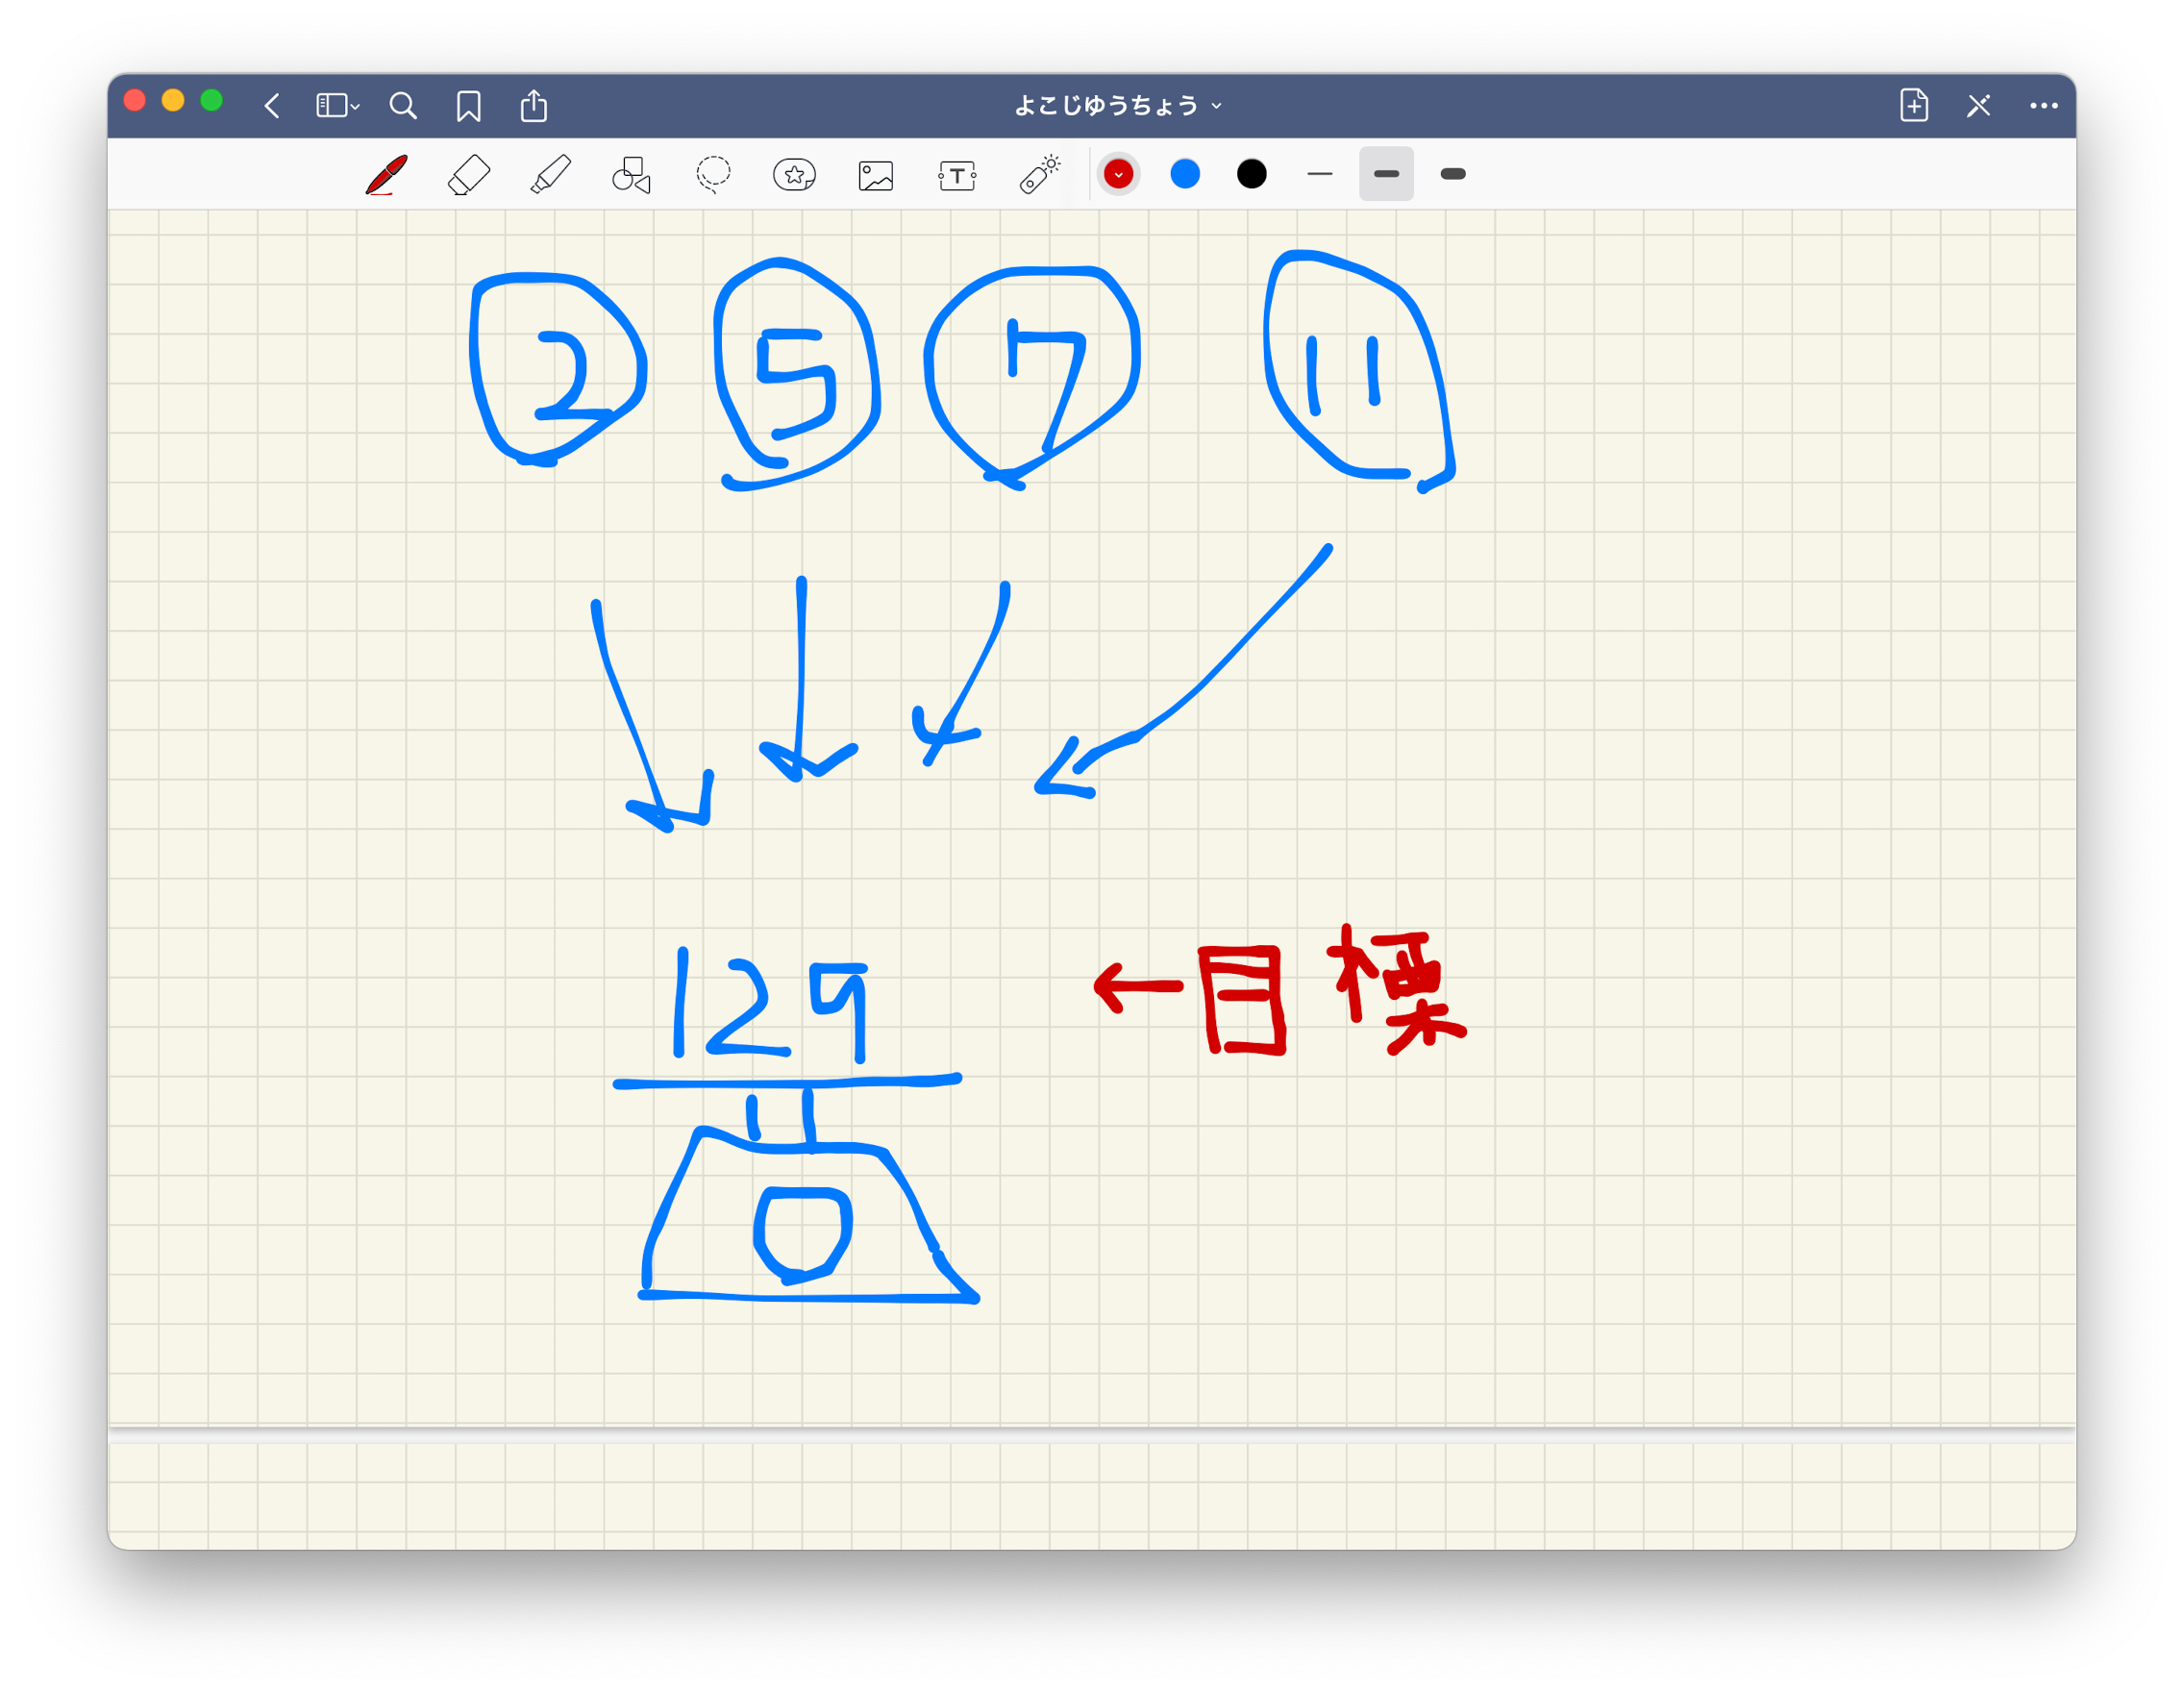 よこじゆうちょう
2 5 7 11
129 ←目標